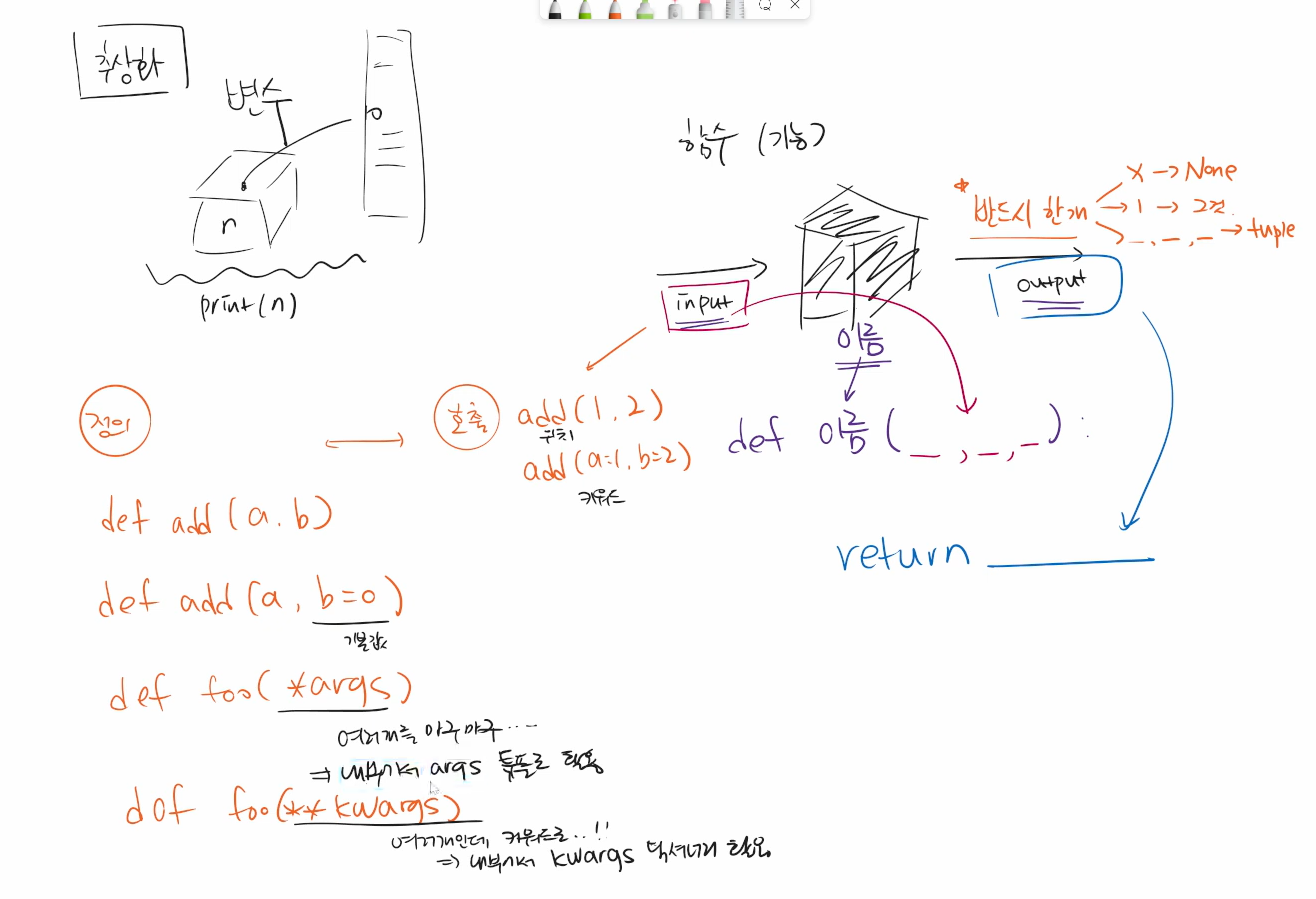 추상화
변수
n
print(n)
함수 (기능)
input
이름
output
* 반드시 한개
x → None
→ 1 → 그것.
_, _, _ → tuple
def 이름( _ , _ , _ ) :
return ______
정의
호출
add(1, 2)
위치
add(a=1, b=2)
키워드
def add(a, b)
def add(a, b=0)
기본값
def foo( *args)
여러개를 마구마구....
⇒ 내부에서 args 튜플로 활용
def foo(**kwargs)
여러개인데, 키워드로..!!
⇒ 내부에서 kwargs 딕셔너리 활용